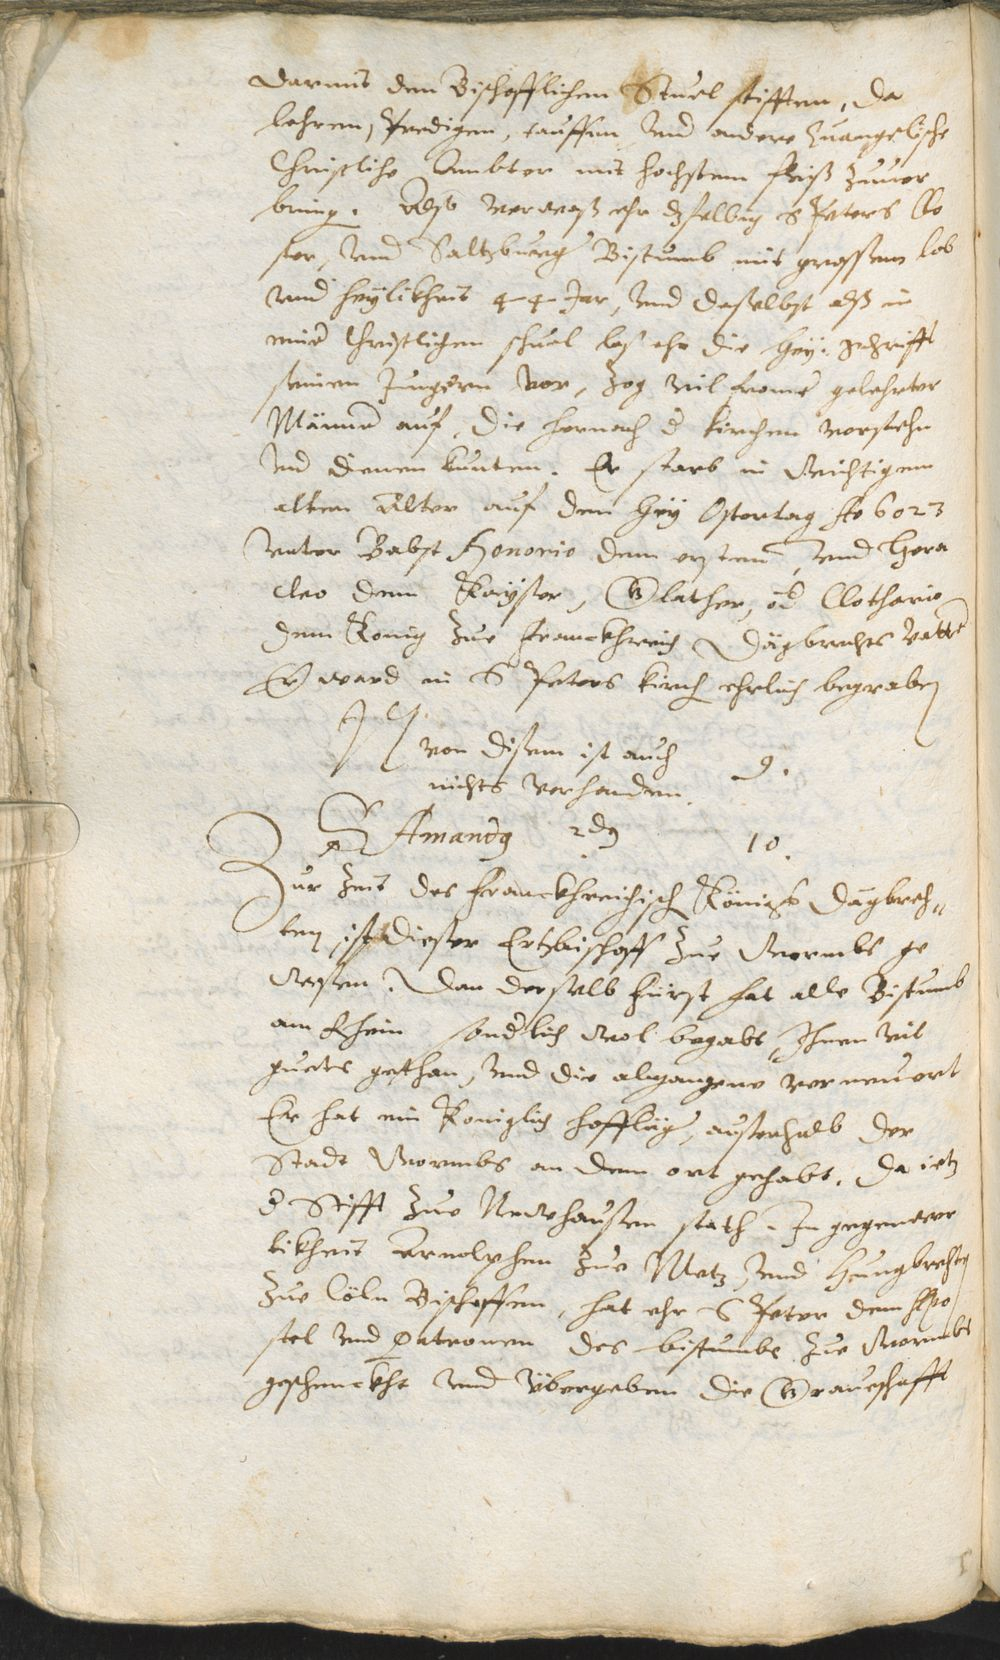 darmit den Bischofflichen Stuel stifften, da
lehren, Predigen, tauffen vnd andere Euangelische
Christliche Ambter mit hochstem fleiß zuuer
bring. Also verwaß ehr dsselbig S Peters Clo
ster, vnd Saltzburg Bistumb mit grossem lob
vnd heylikheit 44 Jar, vnd daselbst alß in
einer Christlichen schuel las ehr die hey: Schrifft
seinen Jungern vor, Zog vil frome gelehrter
Männer auf, die hernach d kirchen vorstehn
vnd dienen kunten. Er starb in
alten Alter auf den hey Ostertag Ao 6023
vnter Babst Honorio dem ersten, vnd Hera
cleo dem Kayser, Glather, od Clothario
dem König zue Franckhreich Dagbrechts Vatter
Er ward in S Peters kirch ehrlich begraben
von disem ist auch 9.
nichts verhanden.
S Amandg 2dg 10.
Zur Zeit des Franckhreichisch Königs Dagbrech„
ten ist dieser Ertzbischoff zue Wormbs ge
wesen. Dan derselb Fürst hat alle Bistumb
am Rhein sonderlich wol begabt, Ihnen vil
guets gethan, vnd die abgangene verneuert
Er hat ein Königlich hofflag, ausserhalb der
Stadt Wormbs an dem ort gehabt. Da ietz
d Stifft zue Newhausen steth. In gegenwer
tikheit Arnolphen zue Metz, vnd Hungbrechten
zue Cöln Bischoffen, hat ehr S Peter dem Apo
stel vnd patronen des bistumbs zue Wormbs
geschenckht vnd vbergeben die Graueschafft